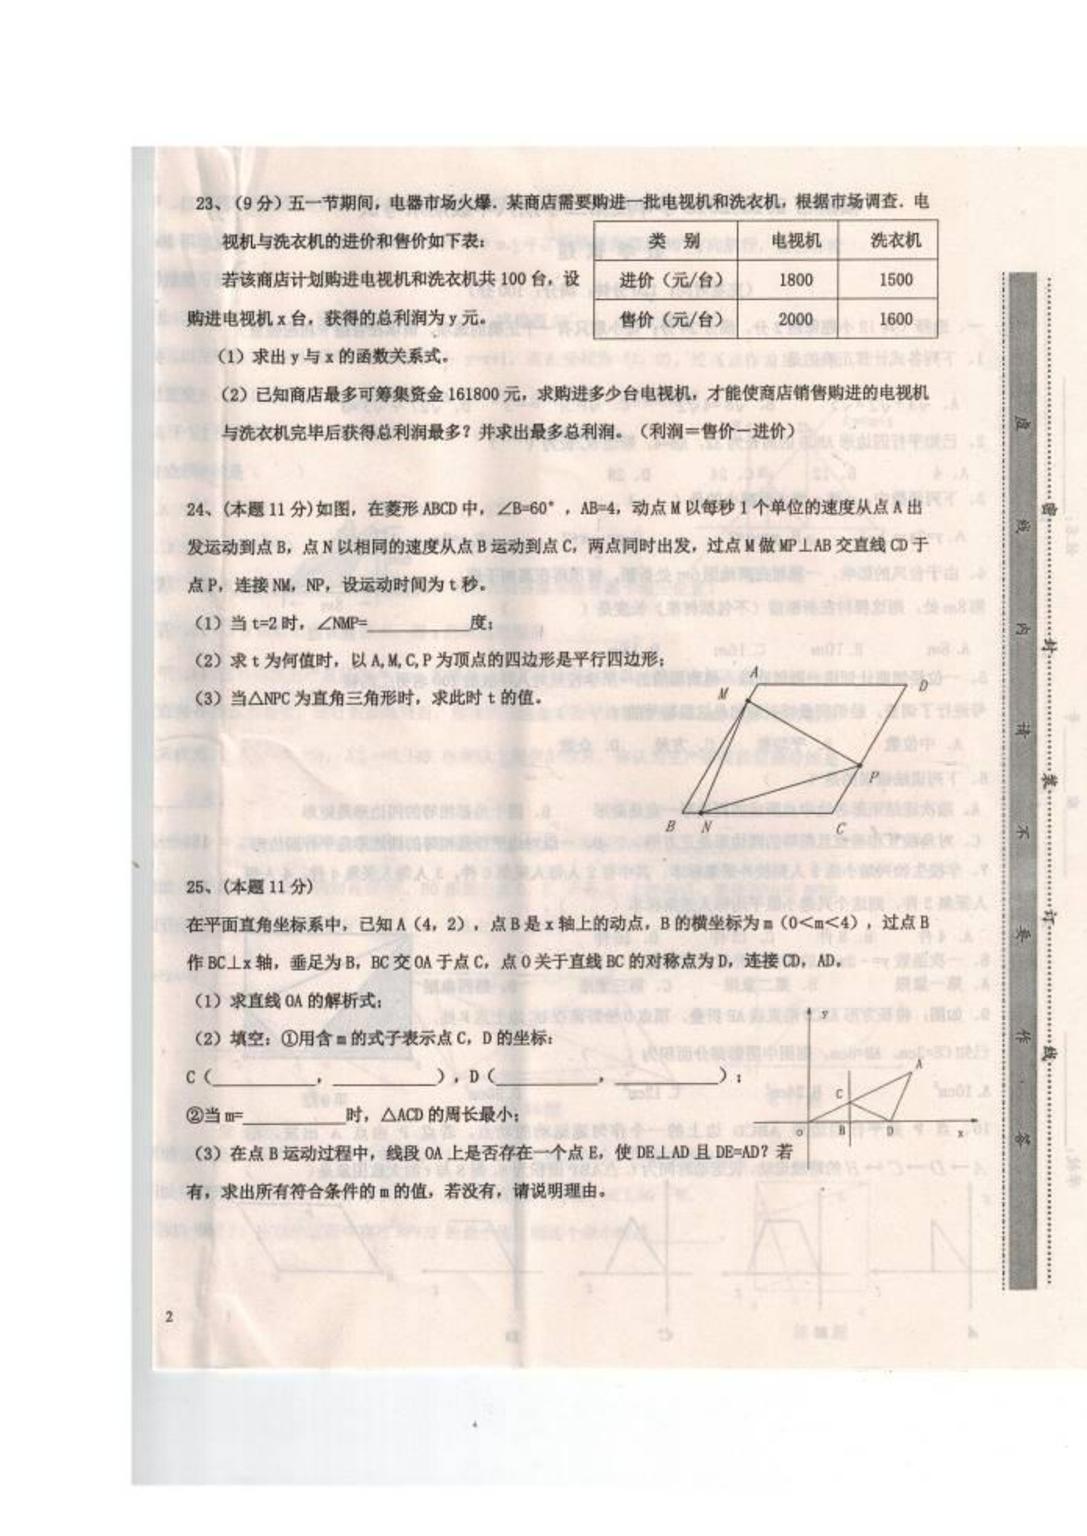 23、(9分)五一节期间，电器市场火爆．某商店需要购进一批电视机和洗衣机，根据市场调查．电
视机与洗衣机的进价和售价如下表：
类 别 电视机 洗衣机
进价（元/台） 1800 1500
售价（元/台） 2000 1600
若该商店计划购进电视机和洗衣机共 100 台，设
购进电视机 x 台，获得的总利润为 y 元。
（1）求出 y 与 x 的函数关系式。
（2）已知商店最多可筹集资金 161800 元，求购进多少台电视机，才能使商店销售购进的电视机
与洗衣机完毕后获得总利润最多？并求出最多总利润。（利润＝售价－进价）
24、(本题 11 分)如图，在菱形 ABCD 中，∠B=60°，AB=4，动点 M 以每秒 1 个单位的速度从点 A 出
发运动到点 B，点 N 以相同的速度从点 B 运动到点 C，两点同时出发，过点 M 做 MP⊥AB 交直线 CD 于
点 P，连接 NM，NP，设运动时间为 t 秒。
（1）当 t=2 时，∠NMP=__________度；
（2）求 t 为何值时，以 A,M,C,P 为顶点的四边形是平行四边形；
（3）当△NPC 为直角三角形时，求此时 t 的值。
A
D
M
P
B N C
25、(本题 11 分)
在平面直角坐标系中，已知 A（4，2），点 B 是 x 轴上的动点，B 的横坐标为 m（0<m<4），过点 B
作 BC⊥x 轴，垂足为 B，BC 交 OA 于点 C，点 O 关于直线 BC 的对称点为 D，连接 CD，AD。
（1）求直线 OA 的解析式；
（2）填空：①用含 m 的式子表示点 C，D 的坐标：
C（__________，__________），D（__________，__________）；
②当 m=__________时，△ACD 的周长最小；
（3）在点 B 运动过程中，线段 OA 上是否存在一个点 E，使 DE⊥AD 且 DE=AD？若
有，求出所有符合条件的 m 的值，若没有，请说明理由。
y
A
C
O B D x
2
密
封
装
订
线
线
内
请
不
作
答